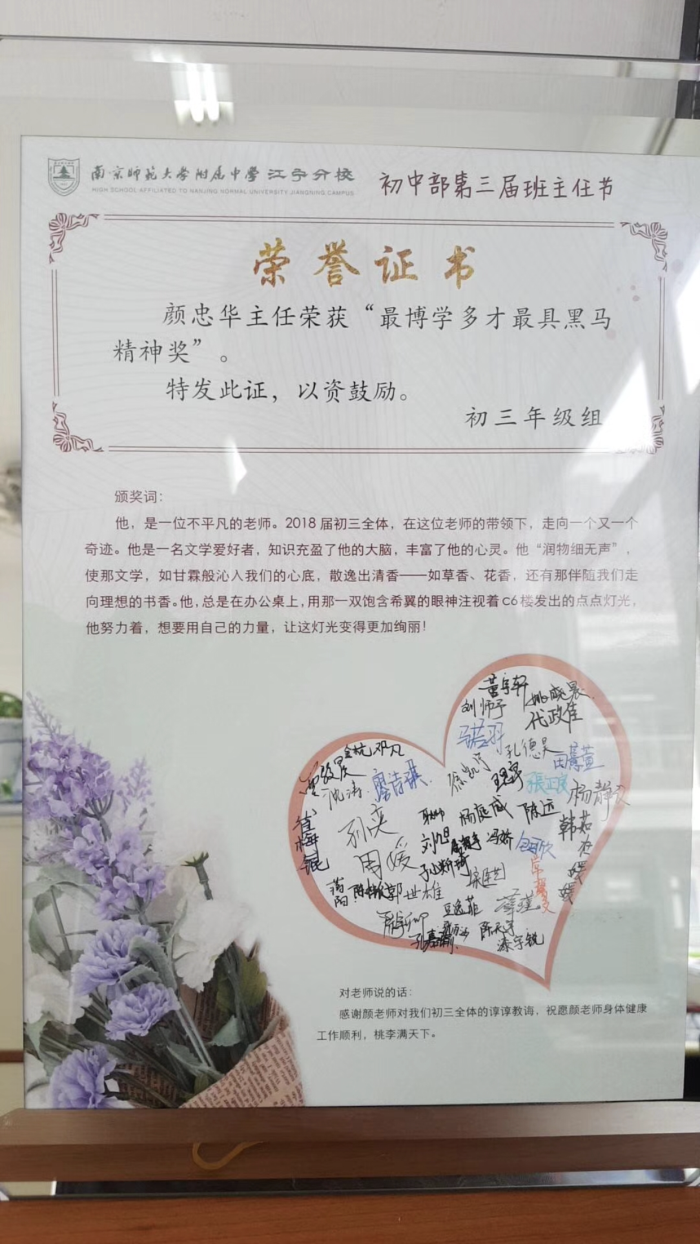 南京师范大学附属中学江宁分校
HIGH SCHOOL AFFILIATED TO NANJING NORMAL UNIVERSITY JIANGNING CAMPUS
初中部第三届班主任节
荣誉证书
颜忠华主任荣获“最博学多才最具黑马
精神奖”。
特发此证，以资鼓励。
初三年级组
颁奖词：
他，是一位不平凡的老师。2018届初三全体，在这位老师的带领下，走向一个又一个
奇迹。他是一名文学爱好者，知识充盈了他的大脑，丰富了他的心灵。他“润物细无声”，
使那文学，如甘霖般沁人我们的心底，散逸出清香——如草香、花香，还有那伴随我们走
向理想的书香。他，总是在办公桌上，用那一双饱含希翼的眼神注视着c6楼发出的点点灯光，
他努力着，想要用自己的力量，让这灯光变得更加绚丽！
董宇轩
刘师予
姚晓晨
代政隹
孔德昊
杨静文
沈涛
廖诗琪
杨庭威
陈远
孙奕
周媛
郭世雄
对老师说的话：
感谢颜老师对我们初三全体的谆谆教诲，祝愿颜老师身体健康
工作顺利，桃李满天下。